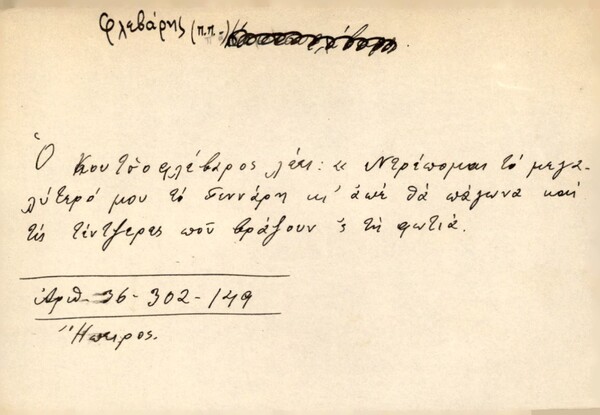 Φλεβάρης (π.π.-)
Ὁ Κουτσοφλέβαρος λέει: "Ντρέπομαι τὸ μεγα-
λύτερό μου τὸ Γεννάρη κι'
θὰ πάγωνα καὶ
τὶς τέντζερες ποῦ βράζουν 'ς τὴ φωτιά.
Ἀριθ. 36-302-149
Ἤπειρος.